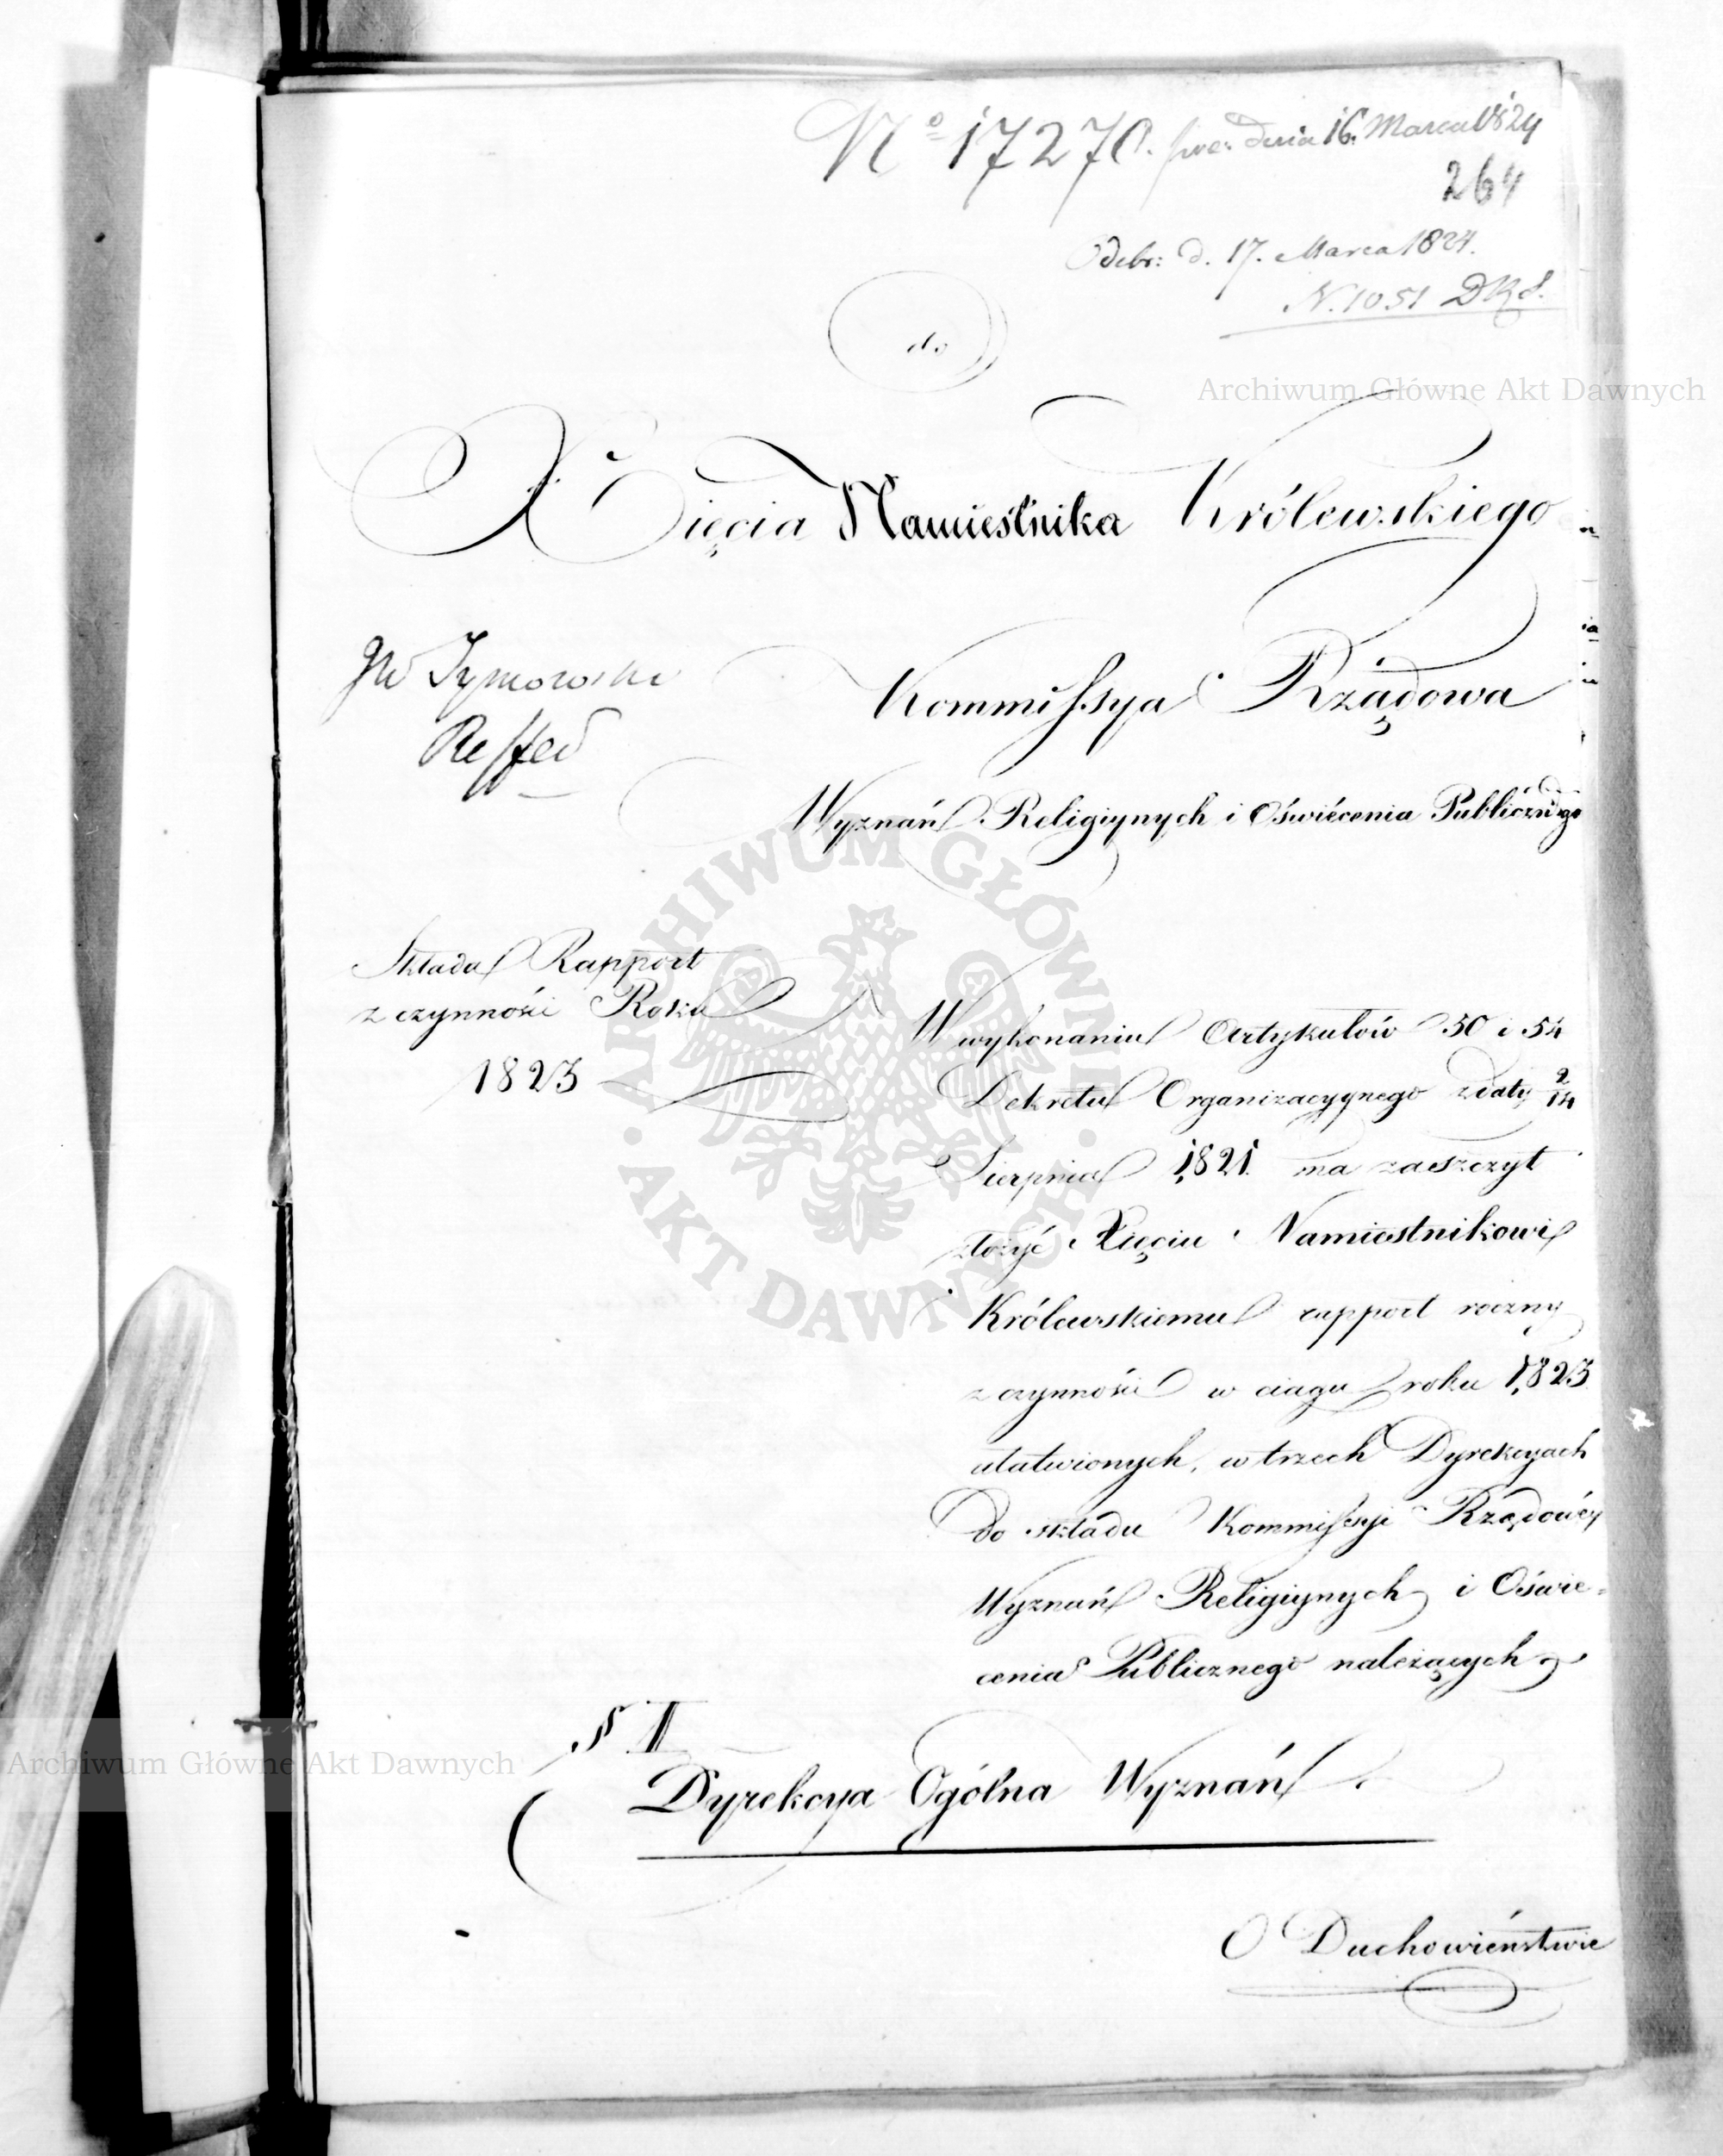 No 17270. prez. dnia 16. Marca 1824
264
Odebr: d. 17. Marca 1824.
N. 1051
do
Xięcia Namiestnika Królewskiego
JW Tymowski
Kommissya Rządowa
Wyznań Religiynych i Oświécenia Publicznego
Składa Rapport
z czynności Roku
1823
W wykonaniu Artykułów 50 i 54
Dekretu Organizacyynego z daty 2/14
Sierpnia 1821. ma zaszczyt
złożyć Xięciu Namiestnikowi
Królewskiemu rapport roczny
z czynności w ciągu roku 1823
ułatwionych, w trzech Dyrekcyach
do składu Kommissyi Rządowéy
Wyznań Religiynych i Oświe-
cenia Publicznego należących
§ I
Dyrekcya Ogólna Wyznań
O Duchowieństwie
Archiwum Główne Akt Dawnych
ARCHIWUM GŁÓWNE · AKT DAWNYCH ·
Archiwum Główne Akt Dawnych